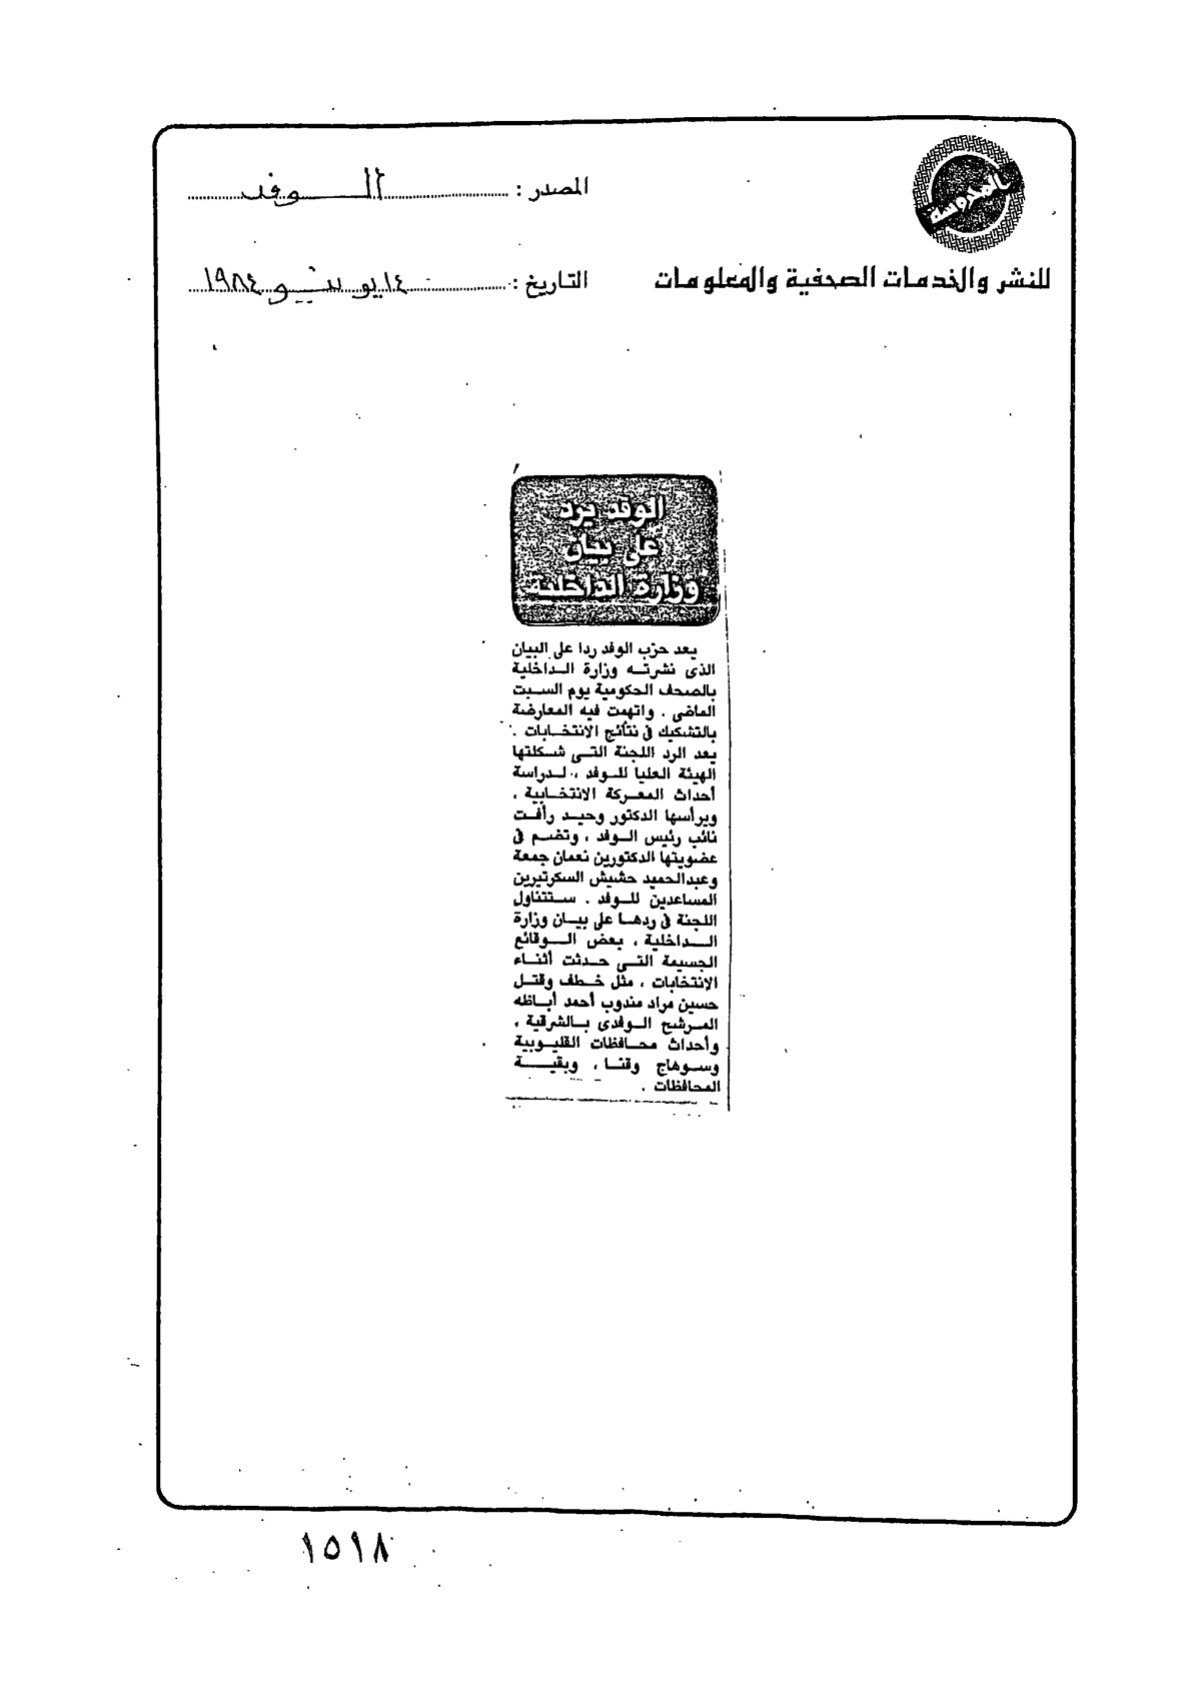 المحروسة
للنشر والخدمات الصحفية والمعلومات
المصدر : الوفد
التاريخ : ١٤ يونيو ١٩٨٤
الوفد يرد
على بيان
وزارة الداخلية
يعد حزب الوفد ردا على البيان
الذى نشرته وزارة الداخلية
بالصحف الحكومية يوم السبت
الماضى . واتهمت فيه المعارضة
بالتشكيك فى نتائج الانتخابات .
يعد الرد اللجنة التى شكلتها
الهيئة العليا للوفد ، لدراسة
أحداث المعركة الانتخابية ،
ويرأسها الدكتور وحيد رأفت
نائب رئيس الوفد ، وتضم فى
عضويتها الدكتورين نعمان جمعة
وعبدالحميد حشيش السكرتيرين
المساعدين للوفد . ستتناول
اللجنة فى ردها على بيان وزارة
الداخلية ، بعض الوقائع
الجسيمة التى حدثت أثناء
الانتخابات ، مثل خطف وقتل
حسين مراد مندوب أحمد أباظه
المرشح الوفدى بالشرقية ،
وأحداث محافظات القليوبية
وسوهاج وقنا ، وبقية
المحافظات .
١٥١٨